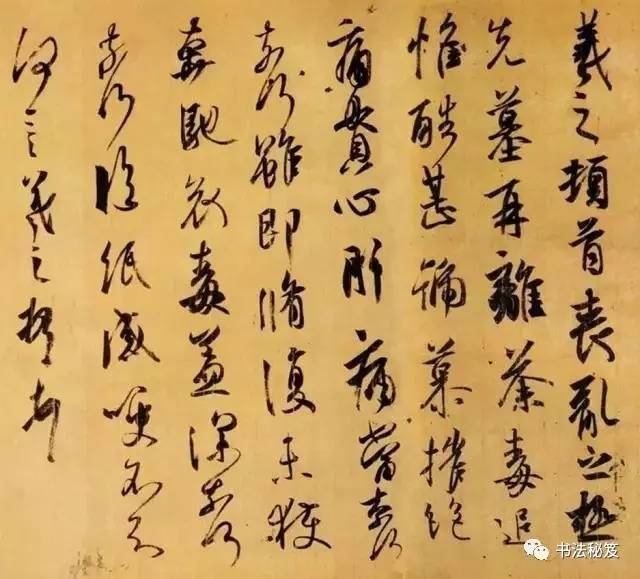 羲之頓首喪亂之極
先墓再離荼毒追
惟酷甚號慕摧絶
痛貫心肝痛當奈何
奈何雖即脩復未獲
奔馳哀毒益深奈何
奈何臨紙感哽不知
何言羲之頓首
书法秘笈